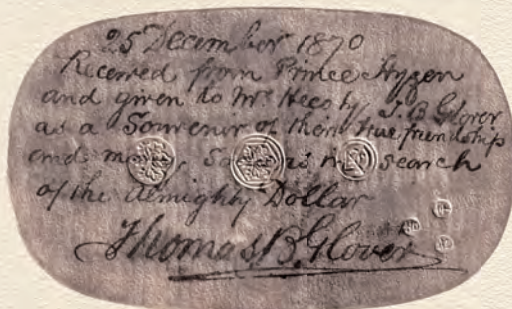 25 December 1870
Received from Prince Hyzen
and given to Mr Heesly, T. B Glover
as a Souvenir of their true friendship
and search
of the Almighty Dollar
Thomas B. Glover